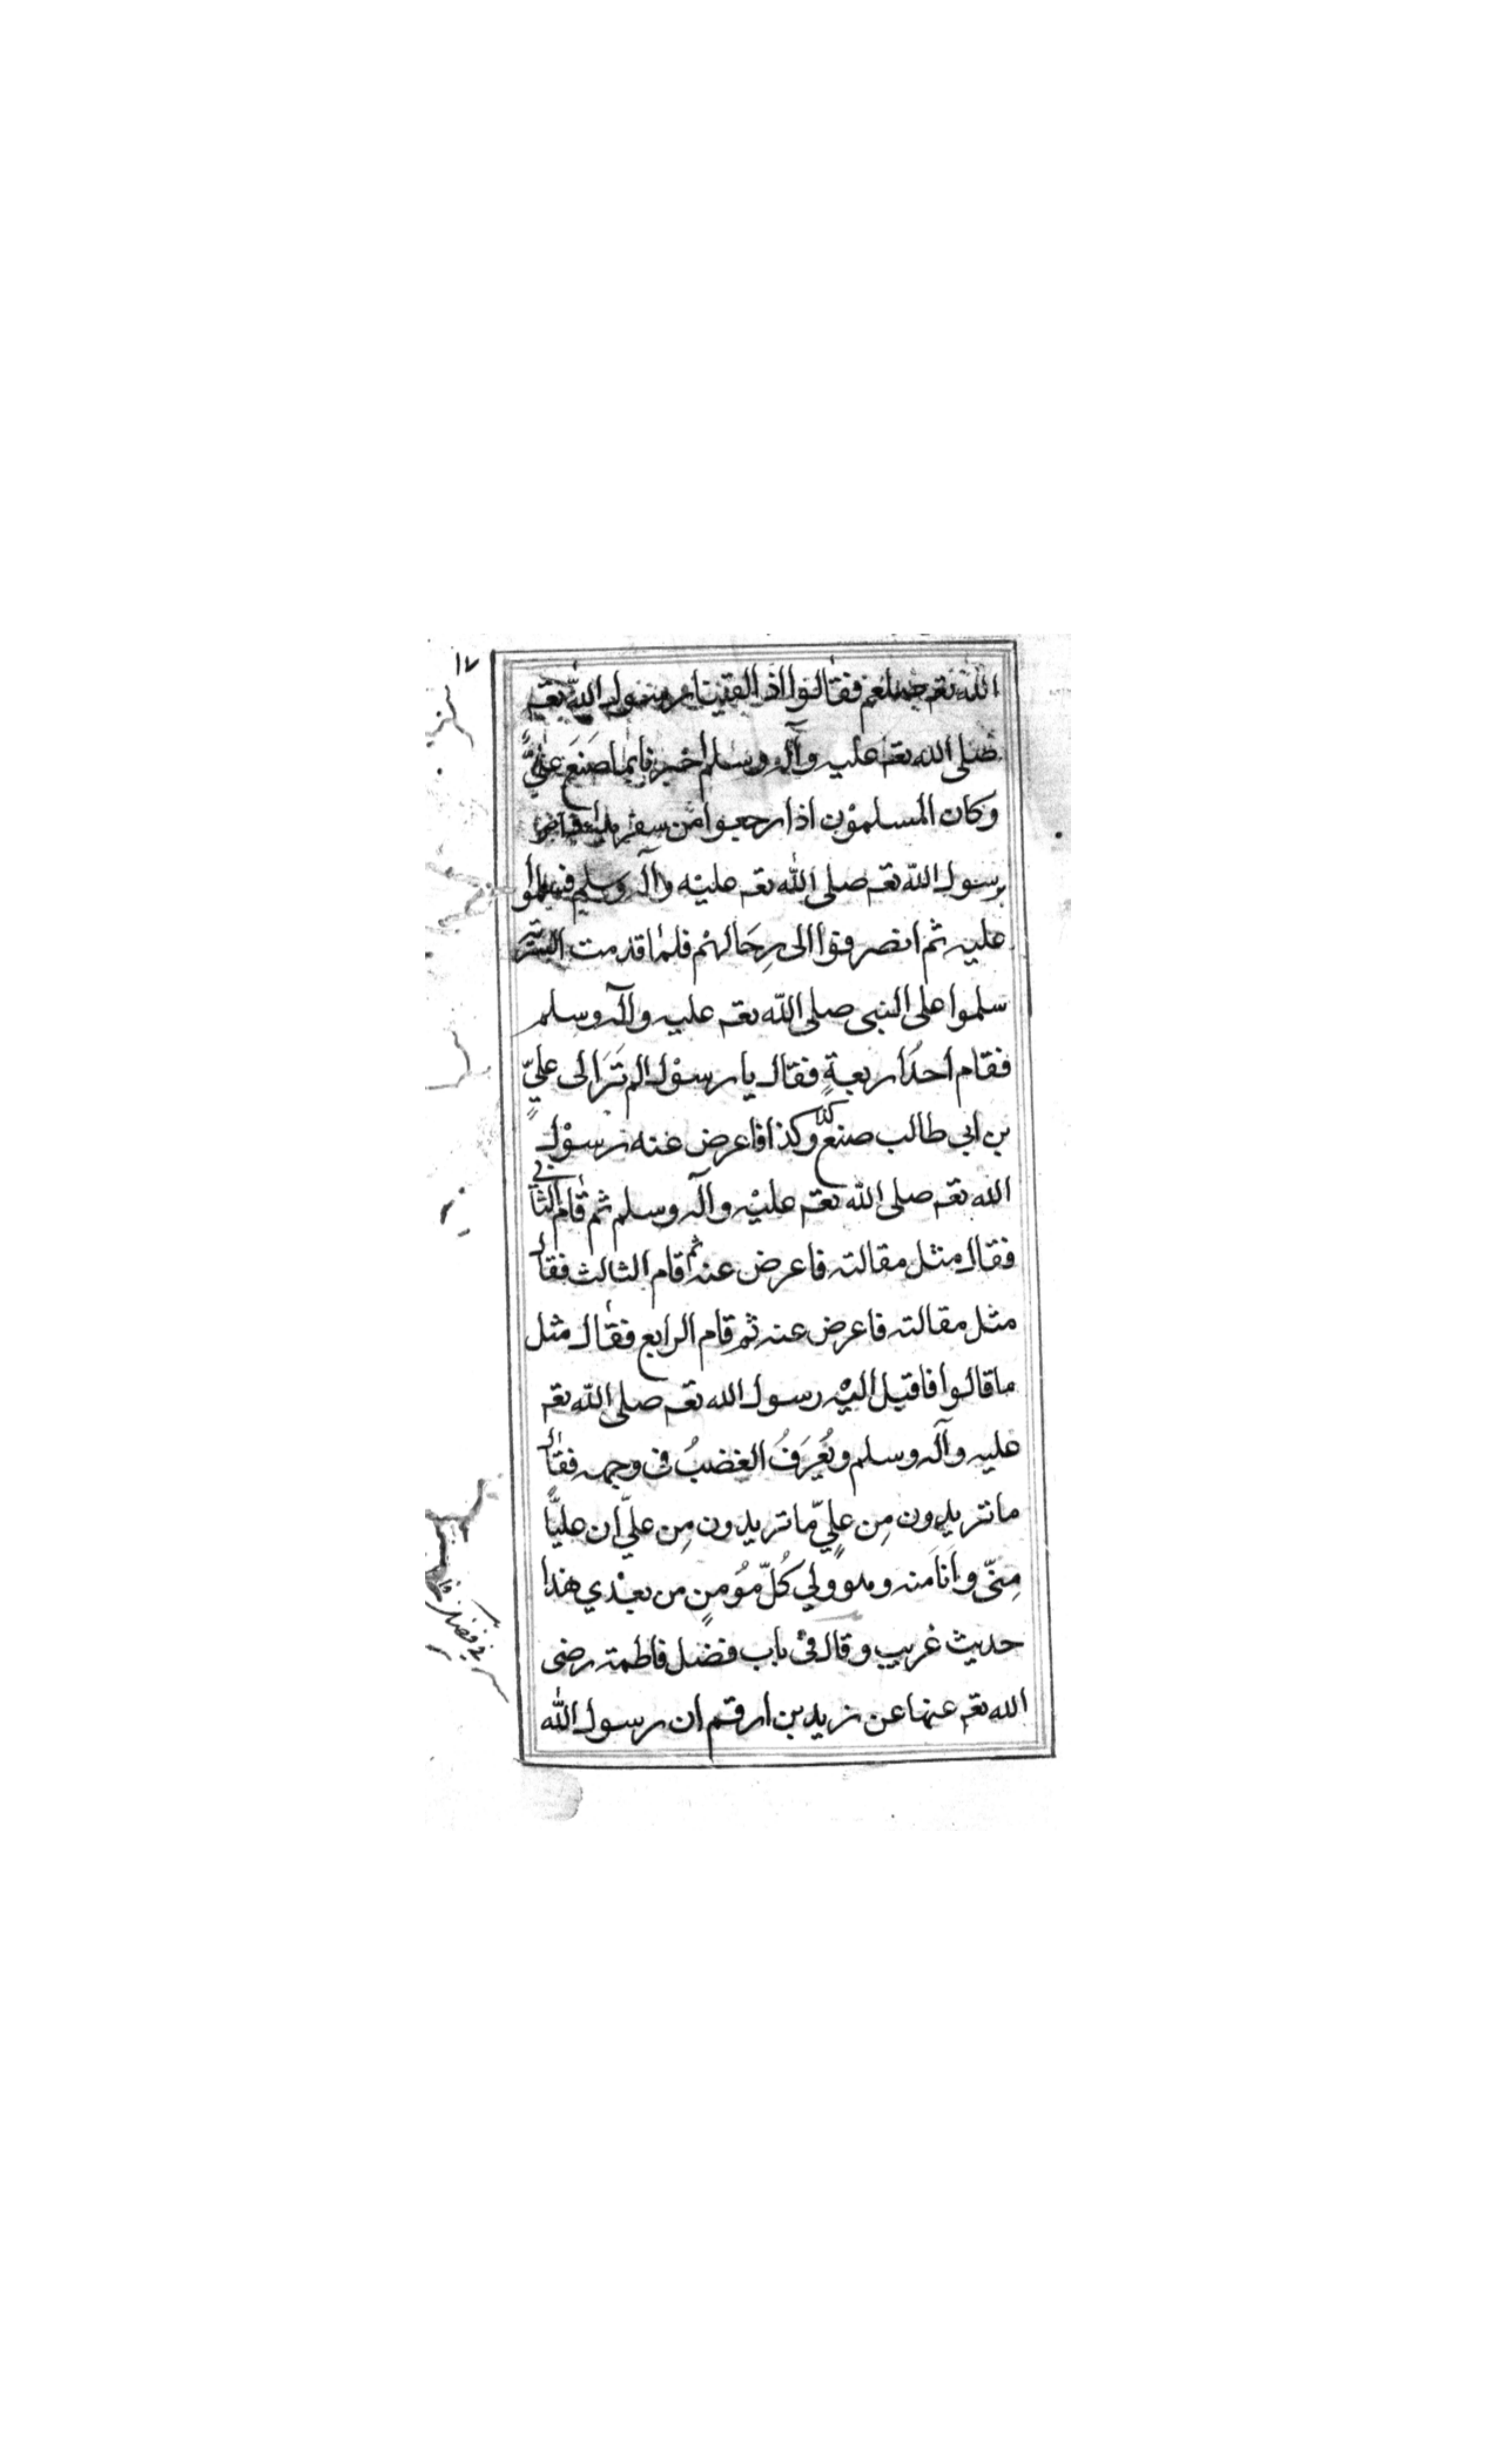 ١٧
الله تعـ صلعم فقالوا اذ القينا رسول الله تعـ
صلى الله تعـ عليه وآله وسلم اخبرناه بما صَنَعَ عليٌّ
وكان المسلموْن اذا رجعوا من سفر
برسول الله تعـ صلى الله تعـ عليْه وآله وسلم فسلموا
عليه ثم انصرفوا الى رِحَالهْم فلما قدمت السرية
سلموا على النبى صلى الله تعـ عليه وآله وسلم
فقام احدُ اربعةٍ فقال يا رسوْل الم تَرَ الى عليٍّ
بن ابى طالب صنع كذا وكذا فاعرض عنه رسوْل
الله تعـ صلى الله تعـ عليْه وآله وسلم ثم قام الثانى
فقال مثل مقالته فاعرض عنه ثم قام الثالث فقال
مثل مقالته فاعرض عنه ثم قام الرابع فقال مثل
ما قالوا فاقبل اليْه رسول الله تعـ صلى الله تعـ
عليه وآله وسلم ويُعْرَفُ الغضبُ فى وجهه فقال
ما تريدون مِن عليٍّ ما تريدون مِن عليّ ان عليًّا
مِنّى وانَا مَنه وهو ولي كُلّ مُؤمنٍ من بعْدي هذا
حديث غريب وقال فىْ باب فضل فاطمة رضى
الله تعـ عنها عن زيد بن ارقم ان رسول الله